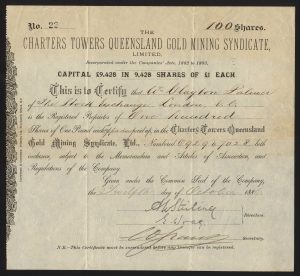 No. 22
100 Shares.
THE
CHARTERS TOWERS QUEENSLAND GOLD MINING SYNDICATE,
LIMITED.
Incorporated under the Companies' Acts, 1862 to 1883.
CAPITAL £9,428 IN 9,428 SHARES OF £1 EACH.
This is to Certify that Wm Clayton Palmer
of The Stock Exchange London, E.C.
is the Registered Proprietor of One hundred
Shares of One Pound each in the Charters Towers Queensland
Gold Mining Syndicate, Ltd., Numbered 6929 to 7028 both
inclusive, subject to the Memorandum and Articles of Association, and
Regulations of the Company.
Given under the Common Seal of the Company,
the Twelfth day of October 188
Directors.
Secretary.
N.B.—This Certificate must be surrendered before any transfer can be registered.